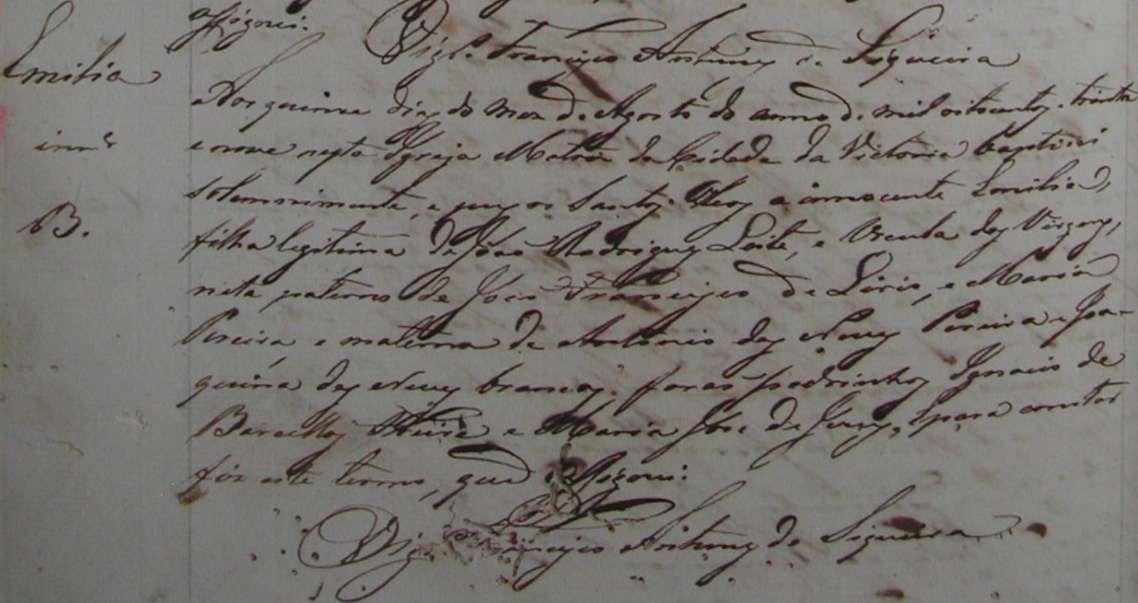 assignei.
Vigr.º Francisco Antunes de Siqueira
Emilia
Aos quinse dias do mez de Agosto do anno de mil oitocentos, trinta
innte
e nove nesta Igreja Matriz da Cidade da Victoria baptisei
solemnimente, e puz os Santos Oleos a innocente Emilia,
B.
filha legitima de João Rodrigues Leite, e Urcula das Virgens,
neta paterno de João Francisco de Líris, e Maria
Pereira e materna de Antonio das Neves Pereira e Joa-
quina das Neves brancos. foras padrinhos Ignacio de
Barcellos Freire e Maria José de Jesus, e para constar
fiz este termo, que assignei.
Vigr.º Francisco Antunes de Siqueira